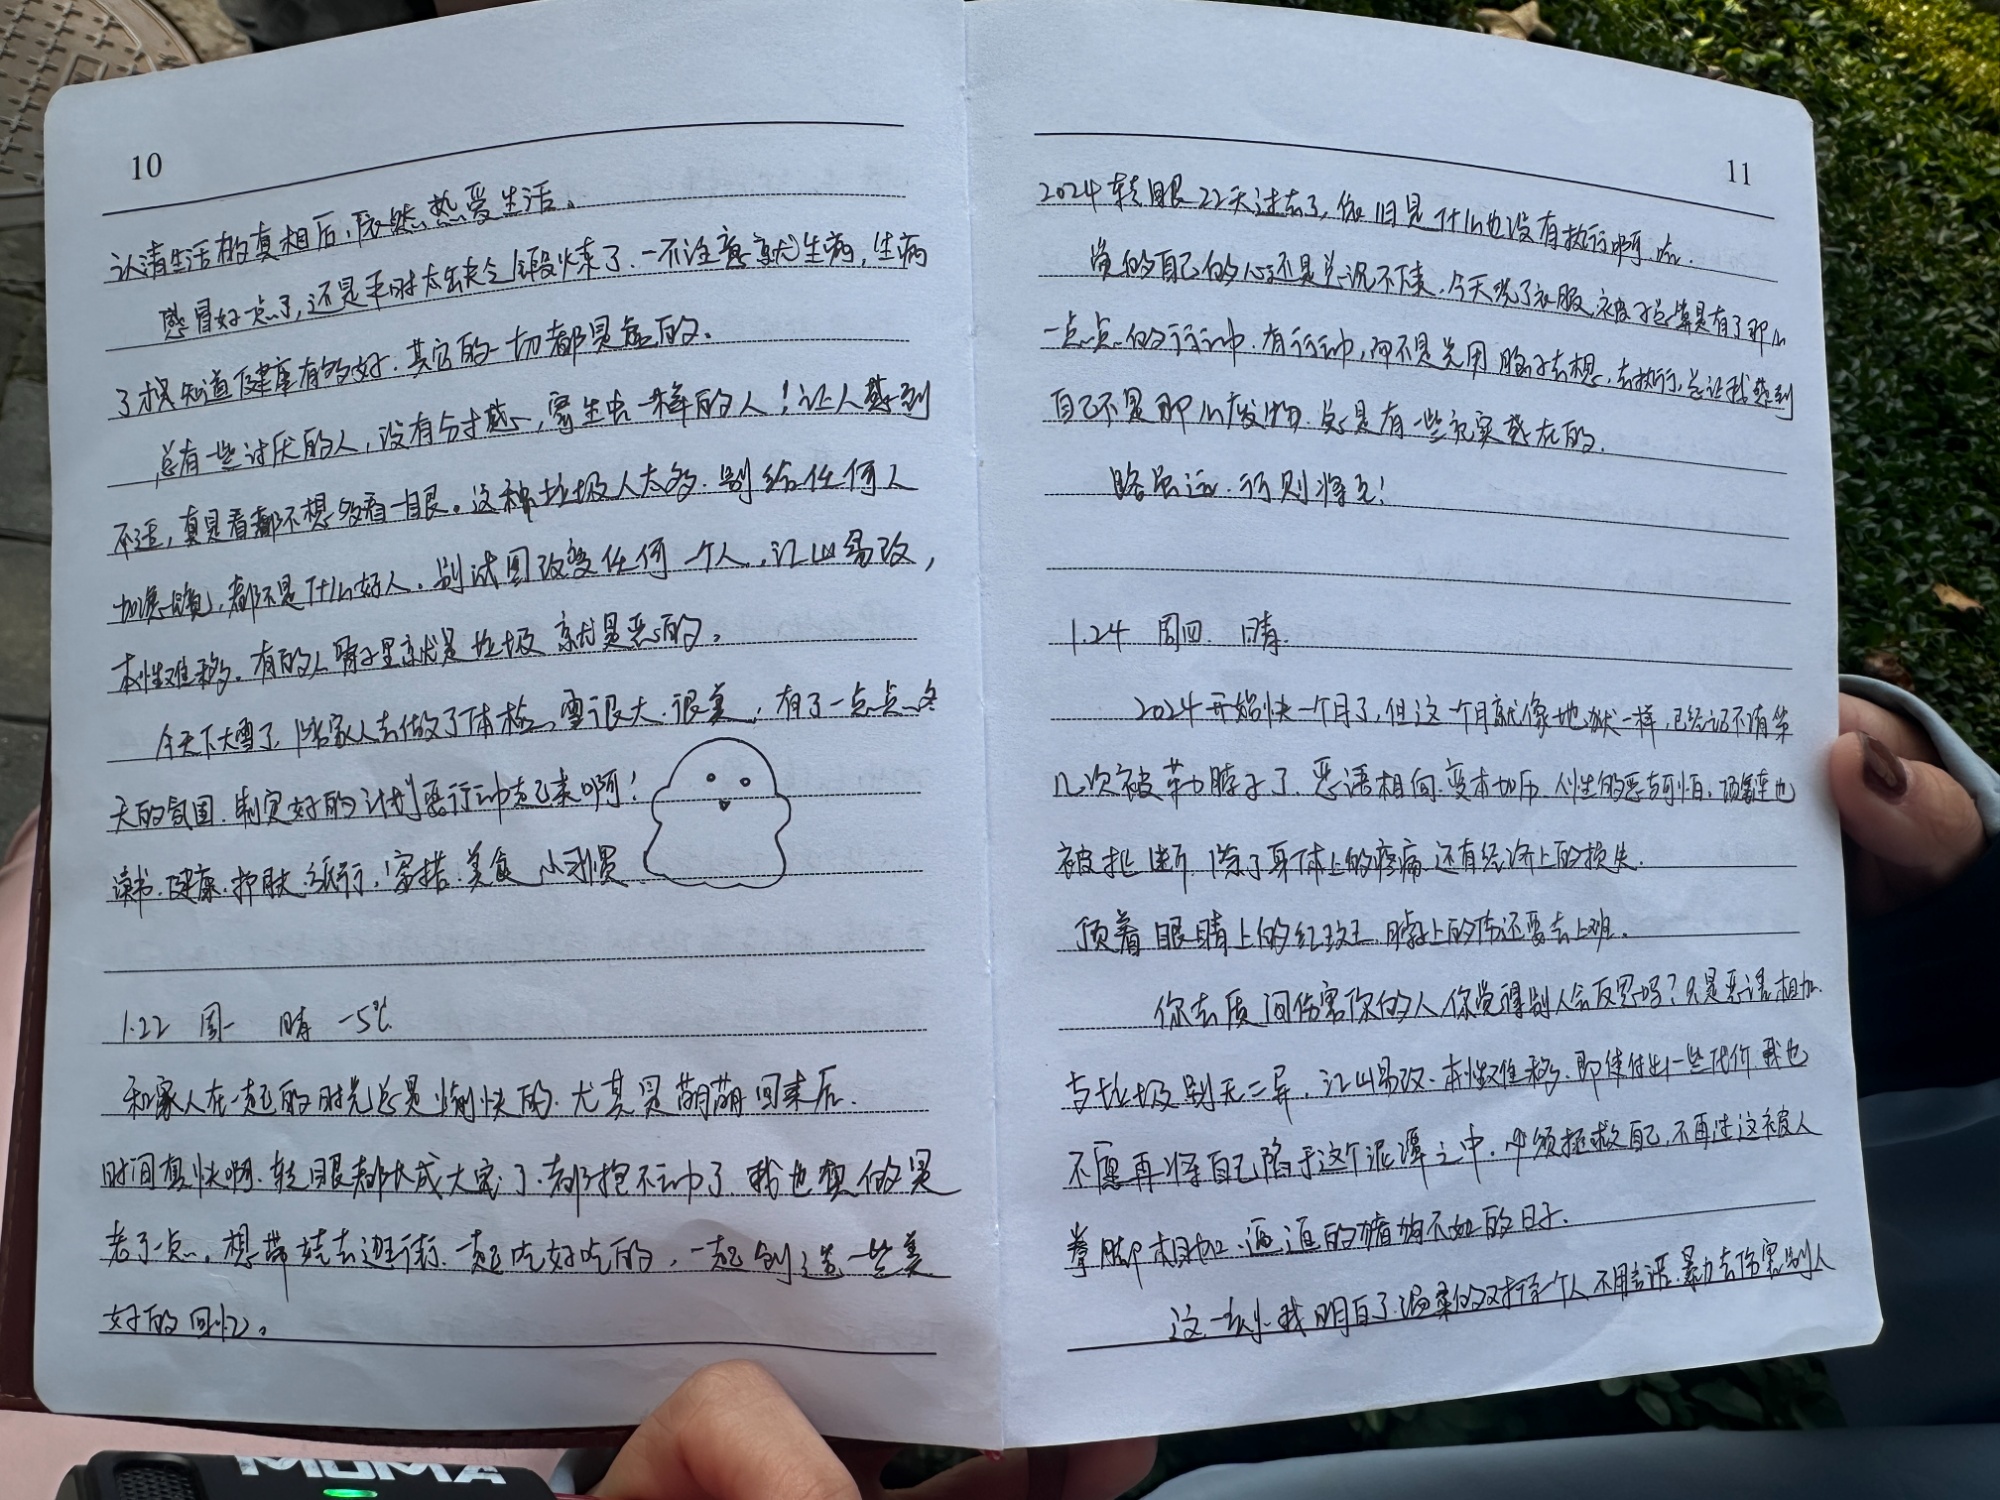 10
认清生活的真相后，依然热爱生活。
感冒好点了，还是平时太缺乏锻炼了。一不注意就生病，生病
了才知道健康有多好．其它的一切都是虚的。
总有一些讨厌的人，没有分寸感，家生出一样的人！让人感到
不适，真是看都不想多看一眼。这种垃圾人太多．别给任何人
都不是什么好人．别试图改变任何一个人．江山易改，
本性难移．有的人骨子里就是垃圾 就是恶的。
今天下大雪了，陪家人去做了体检。雪很大．很美，有了一点点冬
天的氛围．制定好的计划要行动起来啊！
读书．健康．护肤．旅行．穿搭．美食 小习惯
1.22 周一 晴 -5℃
和家人在一起的时光总是愉快的．尤其是萌萌回来后．
时间有快啊．转眼都长成大宝了．都抱不动了．我也想做是
老了一点．想带娃去逛街．一起吃好吃的，一起创造一些美
好的回忆。
11
2024转眼22天过去了，依旧是什么也没有执行啊．
觉的自己的心还是总沉不下来．今天洗了衣服．被子总算是有了那么
一点点的行动．有行动，而不是光用脑子去想．去执行．总让我感到
自己不是那么废物．总是有一些充实感在的．
路虽远．行则将至！
1.24 周四．晴．
2024开始快一个月了，但这个月就像地狱一样，已经记不清第
几次被勒脖子了．恶语相向．变本加厉．人性的恶与可怕．项链也
被扯断．除了身体上的疼痛．还有经济上的损失．
顶着眼睛上的红斑．脖上的伤还要去上班．
你去质问伤害你的人 你觉得别人会反思吗？只是恶语相加．
与垃圾别无二异．江山易改．本性难移．即使付出一些代价．我也
不愿再将自己陷于这个泥潭之中．必须拯救自己，不再过这被人
拳脚相加．逼迫的猪狗不如的日子．
这一刻．我明白了．温柔的对待一个人 不用言语．暴力去伤害别人